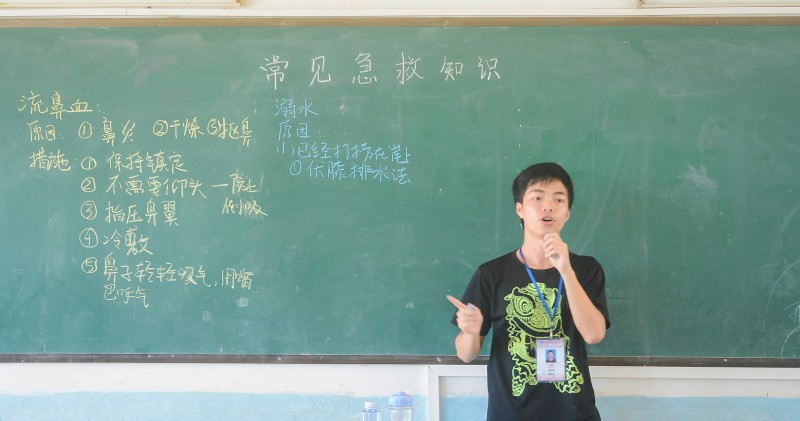 常见急救知识
流鼻血:
原因: ①鼻炎 ②干燥 ③抠鼻
措施: ① 保持镇定
② 不需要仰头 — 防止
倒吸
③ 指压鼻翼
④ 冷敷
⑤ 鼻子轻轻吸气, 用嘴
巴呼气
溺水
原因
已经打捞在岸上
① 伏膝排水法